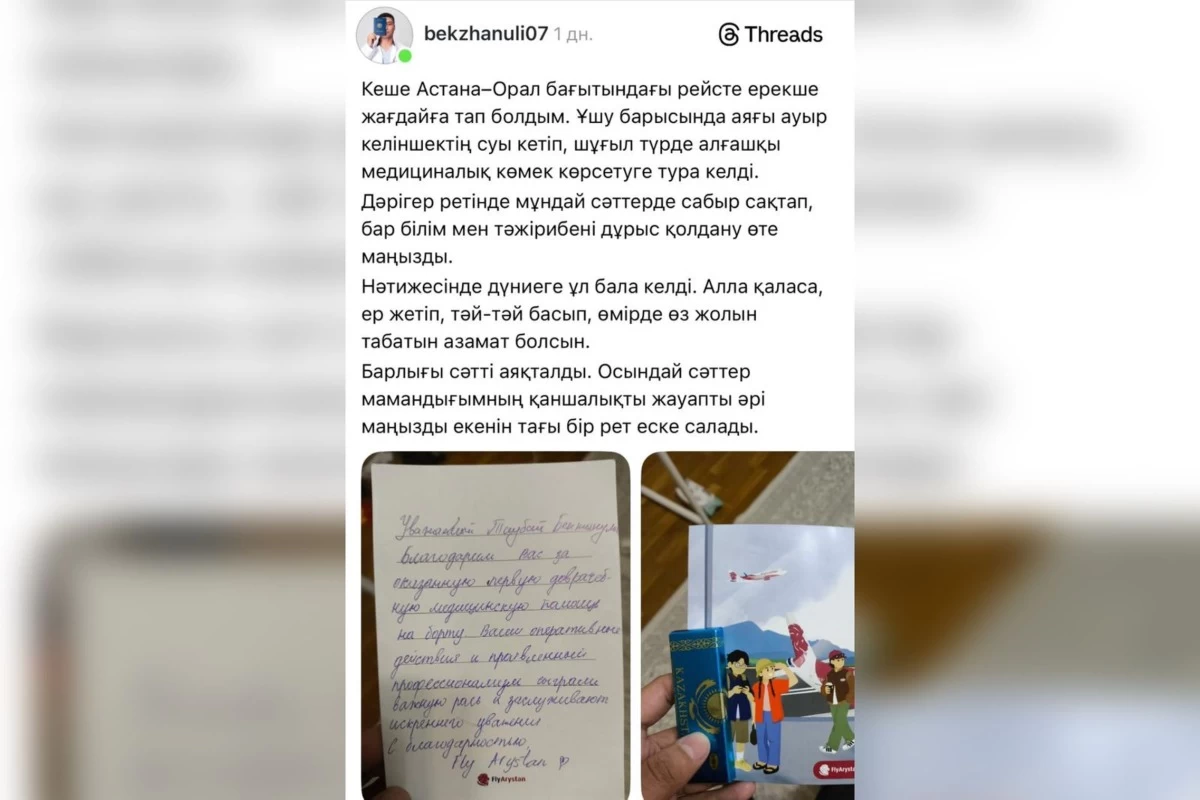 bekzhanuli07 1 дн.
Threads
Кеше Астана–Орал бағытындағы рейсте ерекше
жағдайға тап болдым. Ұшу барысында аяғы ауыр
келіншектің суы кетіп, шұғыл түрде алғашқы
медициналық көмек көрсетуге тура келді.
Дәрігер ретінде мұндай сәттерде сабыр сақтап,
бар білім мен тәжірибені дұрыс қолдану өте
маңызды.
Нәтижесінде дүниеге ұл бала келді. Алла қаласа,
ер жетіп, тәй-тәй басып, өмірде өз жолын
табатын азамат болсын.
Барлығы сәтті аяқталды. Осындай сәттер
мамандығымның қаншалықты жауапты әрі
маңызды екенін тағы бір рет еске салады.
Уважаемый
Благодарим Вас за
оказанную первую доврачеб-
ную медицинскую помощь
на борту. Ваши оперативные
действия и проявленный
профессионализм сыграли
важную роль и заслуживают
искреннего уважения
С благодарностью,
Fly Arystan
FlyArystan
KAZAKHS
FlyArysta